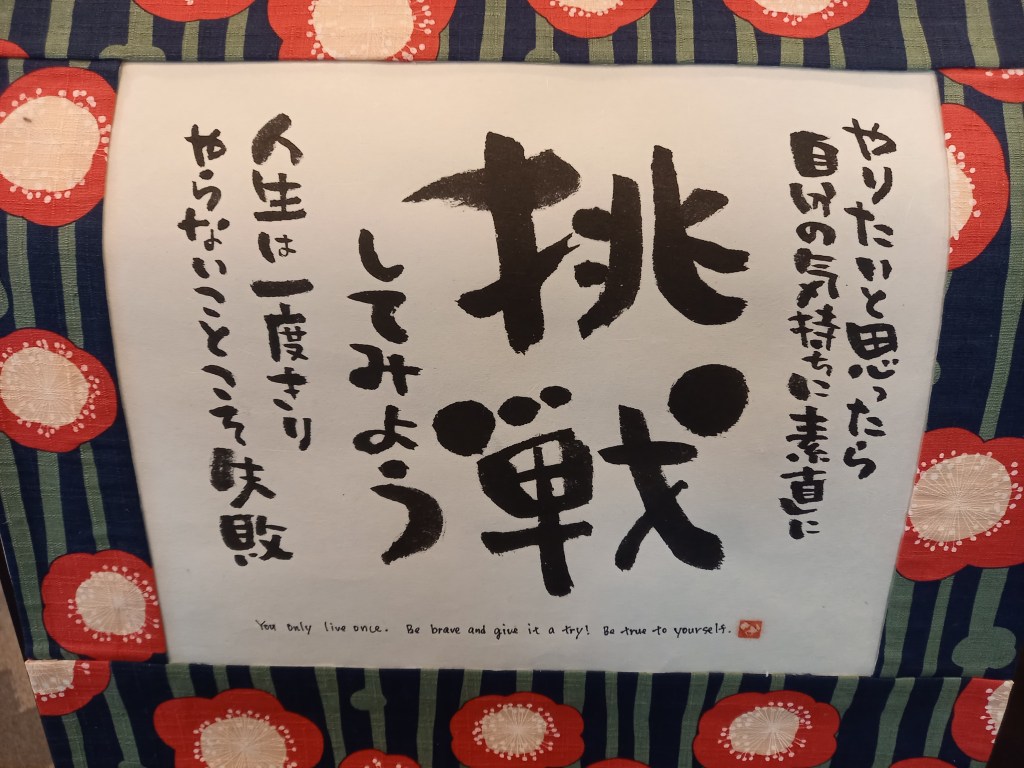 やりたいと思ったら
自分の気持ちに素直に
挑戦
してみよう
人生は一度きり
やらないことこそ失敗
You only live once. Be brave and give it a try! Be true to yourself.